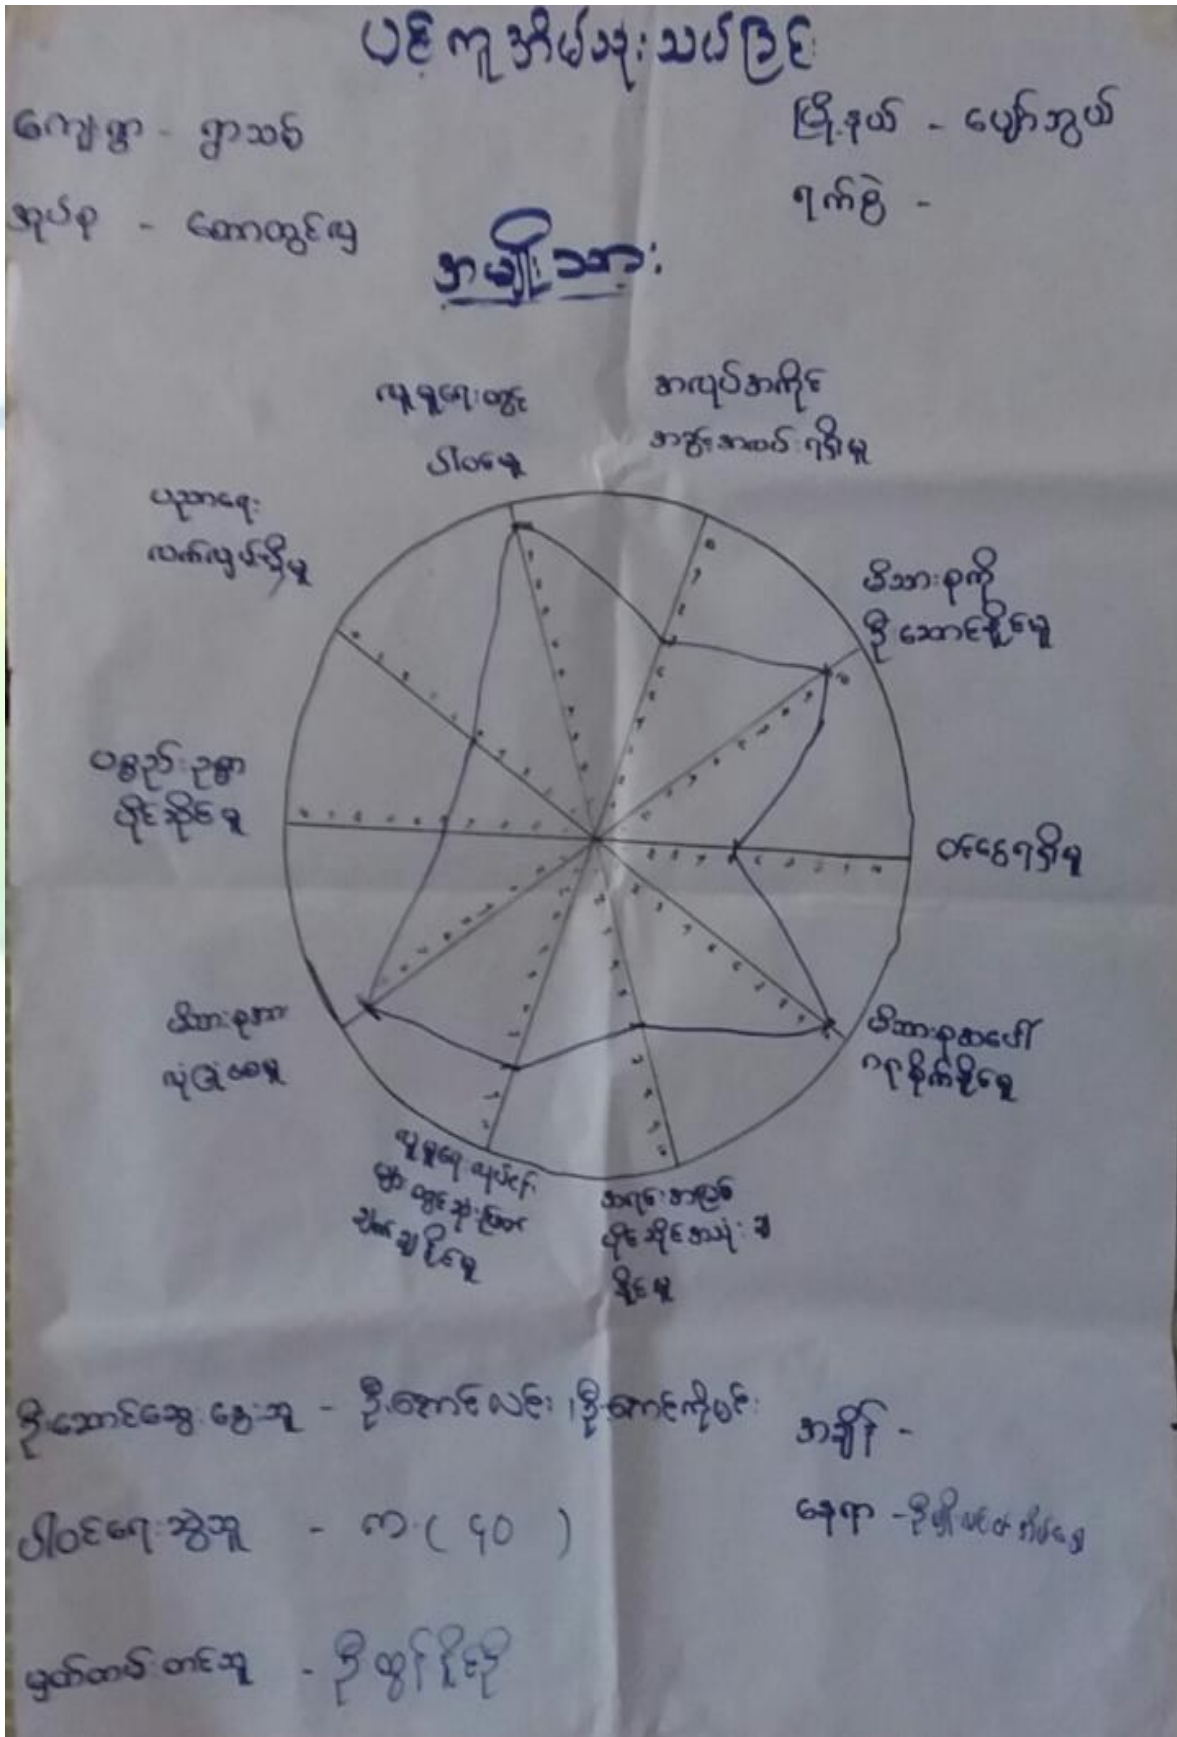 ပင့်ကူအိမ်သုံးသပ်ခြင်း
ကျေးရွာ - ရွာသစ်
မြို့နယ် - ပျော်ဘွယ်
အုပ်စု - တောတွင်းလှ
ရက်စွဲ -
အမျိုးသား
လူမှုရေးတွင်
ပါဝင်မှု
အလုပ်အကိုင်
အခွင့်အလမ်းရရှိမှု
ပညာရေး
လက်လှမ်းမှီမှု
မိသားစုကို
ဦးဆောင်နိုင်မှု
ပစ္စည်းဥစ္စာ
ပိုင်ဆိုင်မှု
ဝင်ငွေရရှိမှု
မိသားစုအား
လုံခြုံစေမှု
မိသားစုအပေါ်
ဂရုစိုက်နိုင်မှု
လူမှုရေးလုပ်ငန်း
များတွင်ဆုံးဖြတ်
ချက်ချနိုင်မှု
အရင်းအမြစ်
ပိုင်ဆိုင်အသုံးချ
နိုင်မှု
ဦးဆောင်ဆွေးနွေးသူ - ဦးအောင်လင်း၊ ဦးအောင်ကိုမင်း
အချိန် -
ပါဝင်ဆွေးနွေးသူ - ကျား ( ၄၀ )
နေရာ -
မှတ်တမ်းတင်သူ - ဦးထွန်းနိုင်ဦး